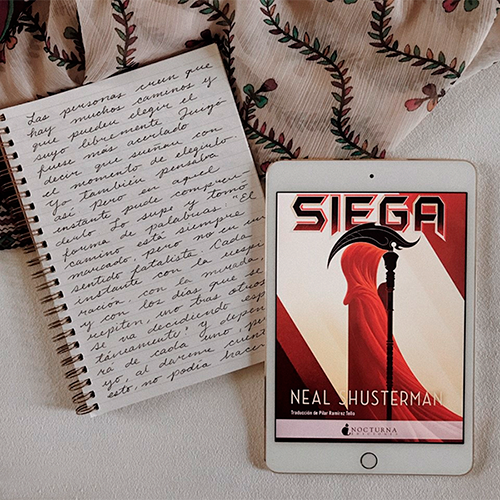 Las personas creen que
hay muchos caminos y
que pueden elegir el
suyo libremente. Quizá
fuese más acertado
decir que sueñan con
el momento de elegirlo.
Yo también pensaba
así. Pero en aquel
instante pude compren-
derlo. Lo supe y tomó
forma de palabras: "El
camino está siempre
marcado, pero no en un
sentido fatalista. Cada
instante con la respi-
ración, con la mirada,
y con los días que se
repiten uno tras otros
se va decidiendo espon
táneamente" y depen
ra de cada uno,
yo, al darme cuenta
esto, no podía hacer
SIEGA
NEAL SHUSTERMAN
Traducción de Pilar Ramírez Tello
NOCTURNA
EDICIONES